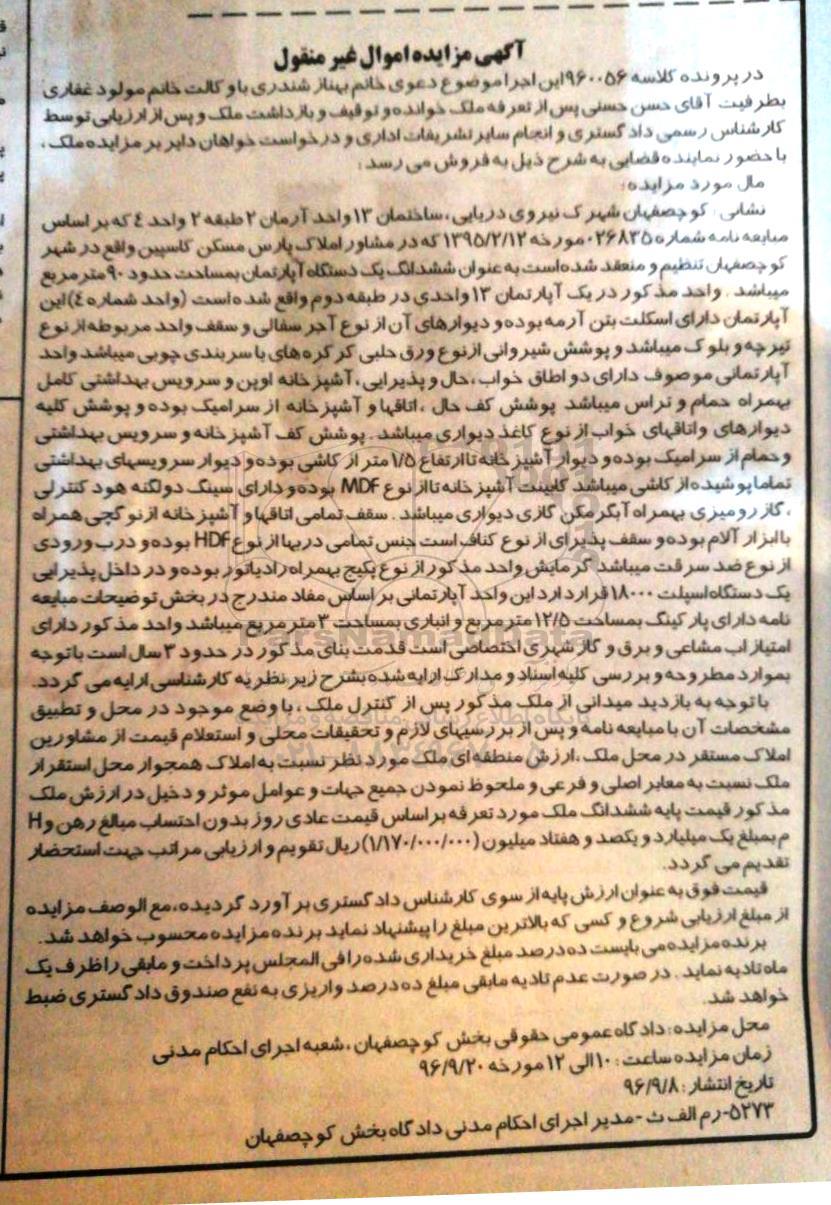 آگهی مزایده اموال غیر منقول
در پرونده کلاسه ۹۶۰۰۵۶ این اجرا موضوع دعوی خانم بهناز شندری با وکالت خانم مولود غفاری
بطرفیت آقای حسن حسنی پس از تعرفه ملک خوانده و توقیف و بازداشت ملک و پس از ارزیابی توسط
کارشناس رسمی دادگستری و انجام سایر تشریفات اداری و درخواست خواهان دایر بر مزایده ملک ،
با حضور نماینده قضایی به شرح ذیل به فروش می رسد :
مال مورد مزایده :
نشانی : کوچصفهان شهرک نیروی دریایی ، ساختمان ۱۳ واحد آرمان ۲ طبقه ۲ واحد ٤ که بر اساس
مبایعه نامه شماره ۰۲۶۸۳۵ مورخه ۱۳۹۵/۲/۱۲ که در مشاور املاک پارس مسکن کاسپین واقع در شهر
کوچصفهان تنظیم و منعقد شده است به عنوان ششدانگ یک دستگاه آپارتمان بمساحت حدود ۹۰ متر مربع
میباشد . واحد مذکور در یک آپارتمان ۱۳ واحدی در طبقه دوم واقع شده است (واحد شماره ٤) این
آپارتمان دارای اسکلت بتن آرمه بوده و دیوارهای آن از نوع آجر سفالی و سقف واحد مربوطه از نوع
تیرچه و بلوک میباشد و پوشش شیروانی از نوع ورق حلبی کرکره های با سربندی چوبی میباشد واحد
آپارتمانی موصوف دارای دو اطاق خواب ، حال و پذیرایی ، آشپزخانه اوپن و سرویس بهداشتی کامل
بهمراه حمام و تراس میباشد پوشش کف حال ، اتاقها و آشپزخانه از سرامیک بوده و پوشش کلیه
دیوارهای واتاقهای خواب از نوع کاغذ دیواری میباشد . پوشش کف آشپزخانه و سرویس بهداشتی
و حمام از سرامیک بوده و دیوار آشپزخانه تا ارتفاع ۱/۵ متر از کاشی بوده و دیوار سرویسهای بهداشتی
تماما پوشیده از کاشی میباشد کابینت آشپزخانه تا از نوع MDF بوده و دارای سینک دولگنه هود کنترلی
، گاز رومیزی بهمراه آبگرمکن گازی دیواری میباشد . سقف تمامی اتاقها و آشپزخانه از نوع گچی همراه
با ابزار آلام بوده و سقف پذیرای از نوع کناف است جنس تمامی دربها از نوع HDF بوده و درب ورودی
از نوع ضد سرقت میباشد گرمایش واحد مذکور از نوع پکیج بهمراه رادیاتور بوده و در داخل پذیرایی
یک دستگاه اسپلت ۱۸۰۰۰ قرار دارد این واحد آپارتمانی بر اساس مفاد مندرج در بخش توضیحات مبایعه
نامه دارای پارکینگ بمساحت ۱۲/۵ متر مربع و انباری بمساحت ۳ متر مربع میباشد واحد مذکور دارای
امتیاز اب مشاعی و برق و گاز شهری اختصاصی است قدمت بنای مذکور در حدود ۳ سال است با توجه
بموارد مطروحه و بررسی کلیه اسناد و مدارک ارایه شده بشرح زیر نظریه کارشناسی ارایه می گردد.
با توجه به بازدید میدانی از ملک مذکور پس از کنترل ملک ، با وضع موجود در محل و تطبیق
مشخصات آن با مبایعه نامه و پس از بررسیهای لازم و تحقیقات محلی و استعلام قیمت از مشاورین
املاک مستقر در محل ملک ، ارزش منطقه ای ملک مورد نظر نسبت به املاک همجوار محل استقرار
ملک نسبت به معابر اصلی و فرعی و ملحوظ نمودن جمیع جهات و عوامل موثر و دخیل در ارزش ملک
مذکور قیمت پایه ششدانگ ملک مورد تعرفه بر اساس قیمت عادی روز بدون احتساب مبالغ رهن و H
م بمبلغ یک میلیارد و یکصد و هفتاد میلیون (۱/۱۷۰/۰۰۰/۰۰۰) ریال تقویم و ارزیابی مراتب جهت استحضار
تقدیم می گردد.
قیمت فوق به عنوان ارزش پایه از سوی کارشناس دادگستری برآورد گردیده، مع الوصف مزایده
از مبلغ ارزیابی شروع و کسی که بالاترین مبلغ را پیشنهاد نماید برنده مزایده محسوب خواهد شد.
برنده مزایده می بایست ده درصد مبلغ خریداری شده را فی المجلس پرداخت و مابقی را ظرف یک
ماه تادیه نماید . در صورت عدم تادیه مابقی مبلغ ده درصد واریزی به نفع صندوق دادگستری ضبط
خواهد شد.
محل مزایده : دادگاه عمومی حقوقی بخش کوچصفهان ، شعبه اجرای احکام مدنی
زمان مزایده ساعت : ۱۰ الی ۱۲ مورخه ۹۶/۹/۲۰
تاریخ انتشار : ۹۶/۹/۸
۵۲۷۳- رم الف ث - مدیر اجرای احکام مدنی دادگاه بخش کوچصفهان
ParsNamadData
پایگاه اطلاع رسانی مناقصه و مزایده